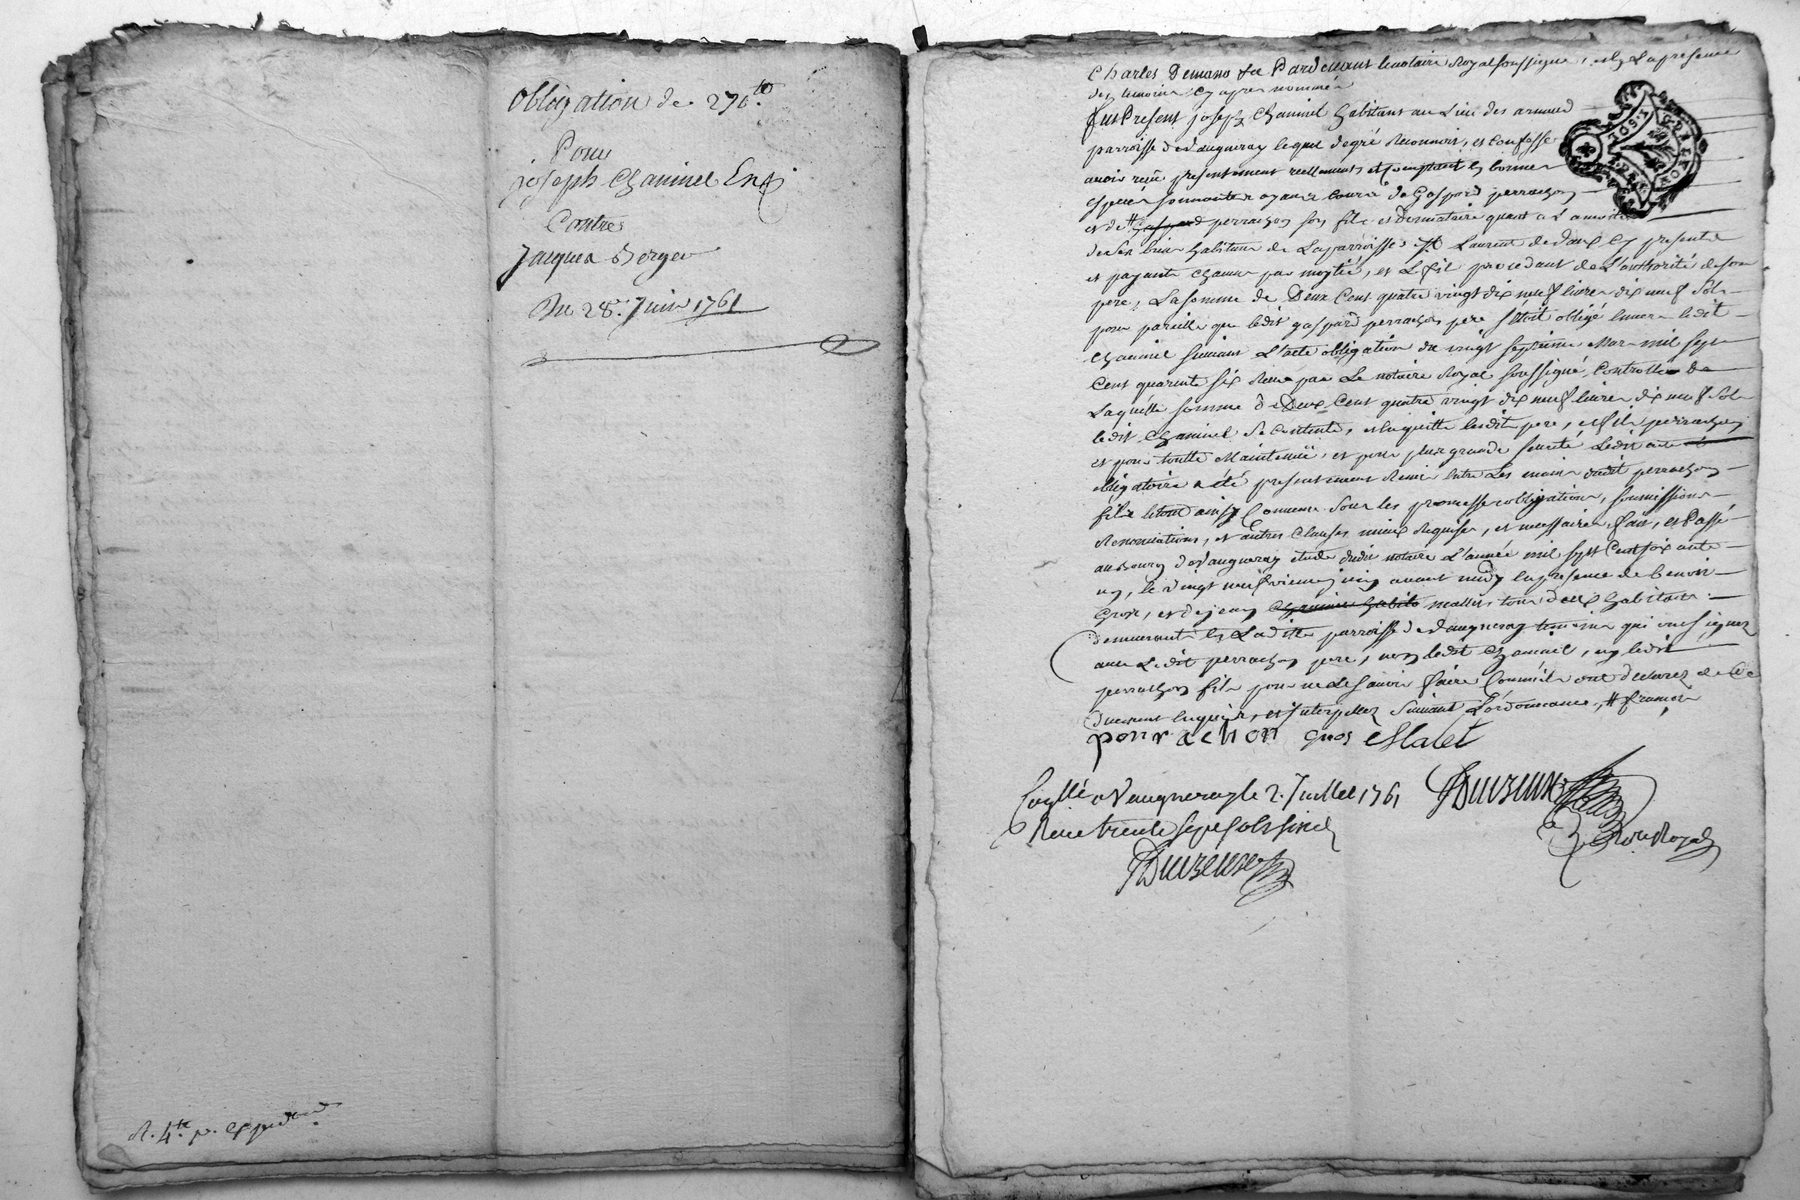 Obligation de 270lt
Pour
joseph Chaminel
Contre
Jacques Berger
Du 28e. Juin 1761
R. 4lt pr. expedon.
pardevant le notaire Royal soussigné, et en la presence
des temoins cy apres nommés
fut Present joseph Chaminel habitant au Lieu des arnaud
parroisse de Vaugneray lequel de gré reconnoit, et confesse
avoir reçû presentement reellement et comptant en bonnes
especes sonnantes ayant cours de Gaspard perrachon
et de # Gaspard perrachon son fils et donnataire quant a la moitié
de ses biens habitans de La parroisse St Laurent de Vaux cy presents
et payants chacun par moytié, et Le fils procedant de L'authorité de son
pere, La somme de Deux Cent quatre vingt dix neuf livres dix neuf sols
pour pareille que ledit gaspard perrachon pere s'étoit obligé envers ledit
Chaminel suivant L'acte obligation du vingt septieme Mars mil sept
Cent quarente six Reçu par Le notaire Royal soussigné, Controllé De
Laquelle somme de Deux Cent quatre vingt dix neuf livres dix neuf sols
ledit Chaminel se contente, et en quitte lesdits pere, et fils perrachon
et pour plus grande sureté Ledit acte
obligatoire a été presentement Remis entre Les mains dudit perrachon
fils le tout ainsy Convenu sous les promesses obligations, soumissions
Renonciations, et autres Clauses mieux Requises, et necessaires fait, et Passé
au Bourg de Vaugneray etude dudit notaire L'année mil sept Cent soix ante
un, le vingt neuf vieme juin avant midy en presence de benoit
Gros, et de jean mallet tous deux habitans
demeurants en Laditte parroisse de Vaugneray temoins qui ont signez
avec Ledit perrachon pere, non ledit Chaminel, ny ledit
perrachon fils pour ne le savoir faire Comm'ils ont declarez de Ce
duement enquis, et interpellez suivant L'ordonnance, # françois
perrachon gros Malet
Conllé a Vaugneray le 2. Juillet 1761
Reçu trente sept sols six d
Note Royal